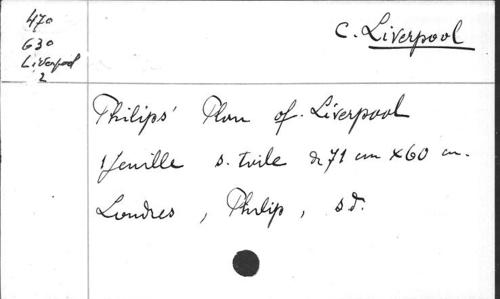 470
630
Liverpool
2
C. Liverpool
Philips' Plan of Liverpool
1 feuille s. toile de 71 cm x 60 cm.
Londres, Philip, s d.